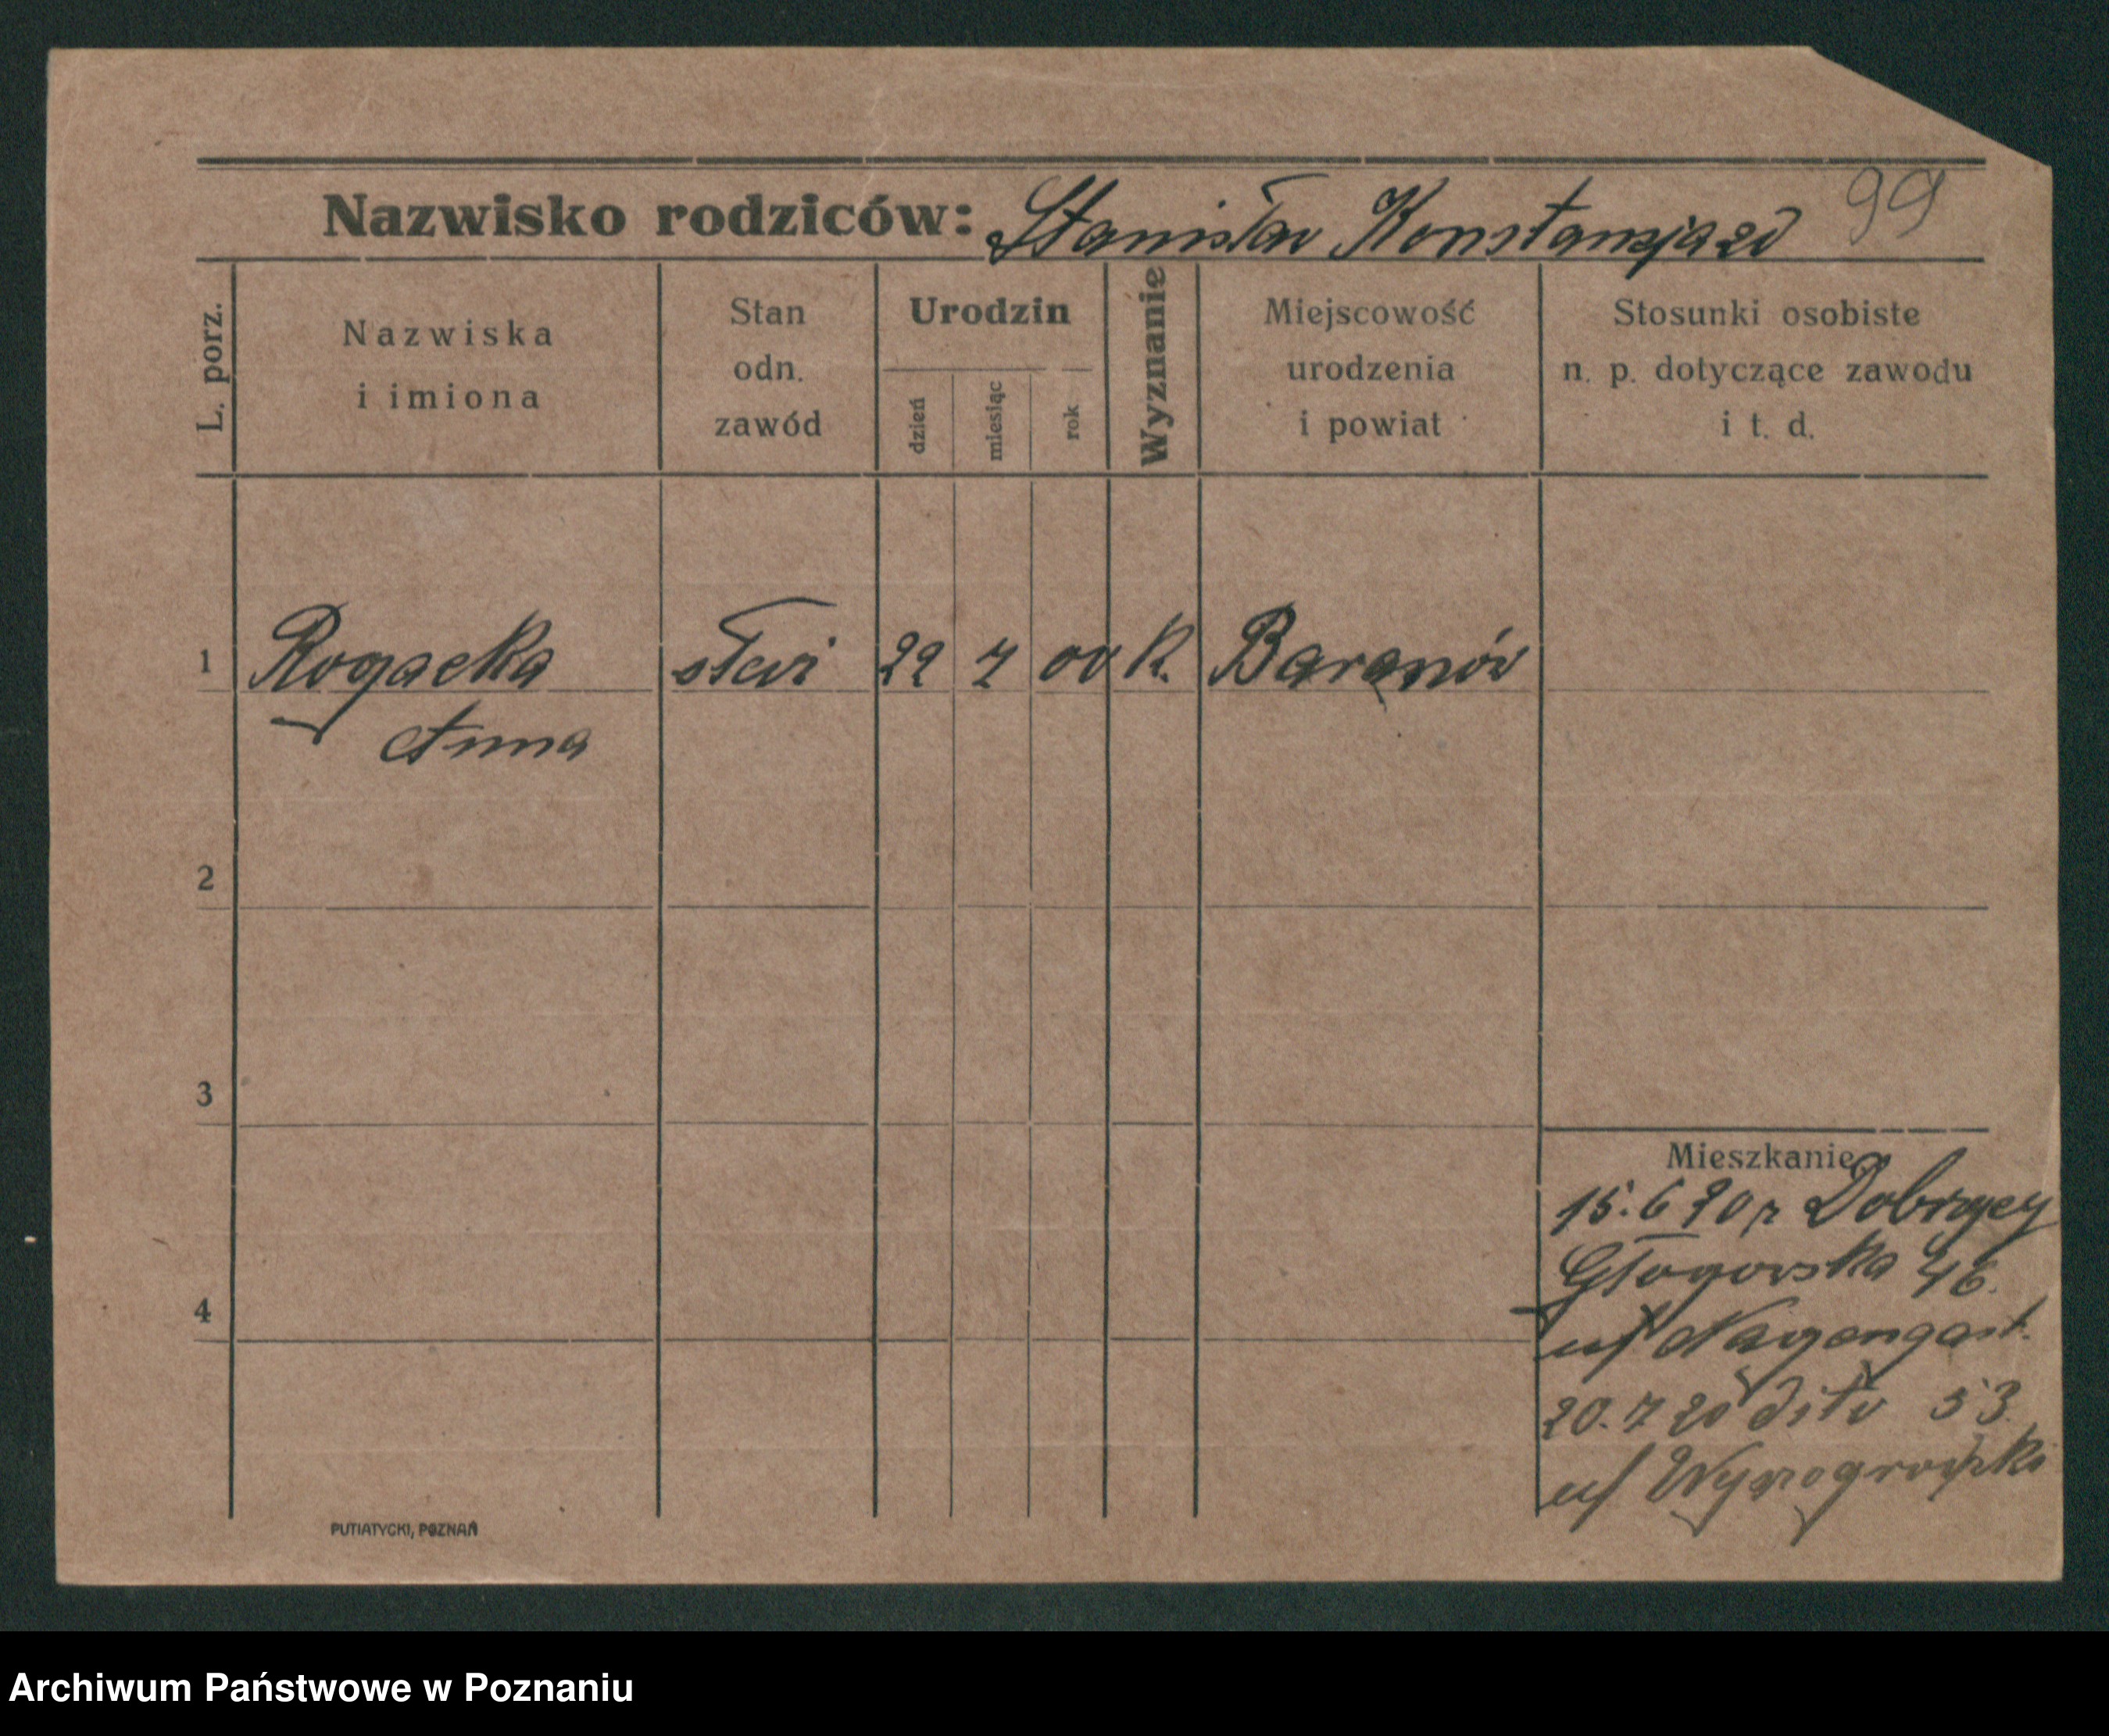 Nazwisko rodziców: Stanisław Konstancja zd 99
L. porz.
Nazwiska i imiona
Stan odn. zawód
Urodzin
dzień miesiąc rok
Wyznanie
Miejscowość urodzenia i powiat
Stosunki osobiste n. p. dotyczące zawodu i t. d.
1 Rogacka 22 7 00 K. Baranów
Anna
2
3
Mieszkanie
15. 6 20 r Dobrzycy
Głogowska 46.
4
20. 7 20 dito 53.
PUTIATYCKI, POZNAŃ
Archiwum Państwowe w Poznaniu